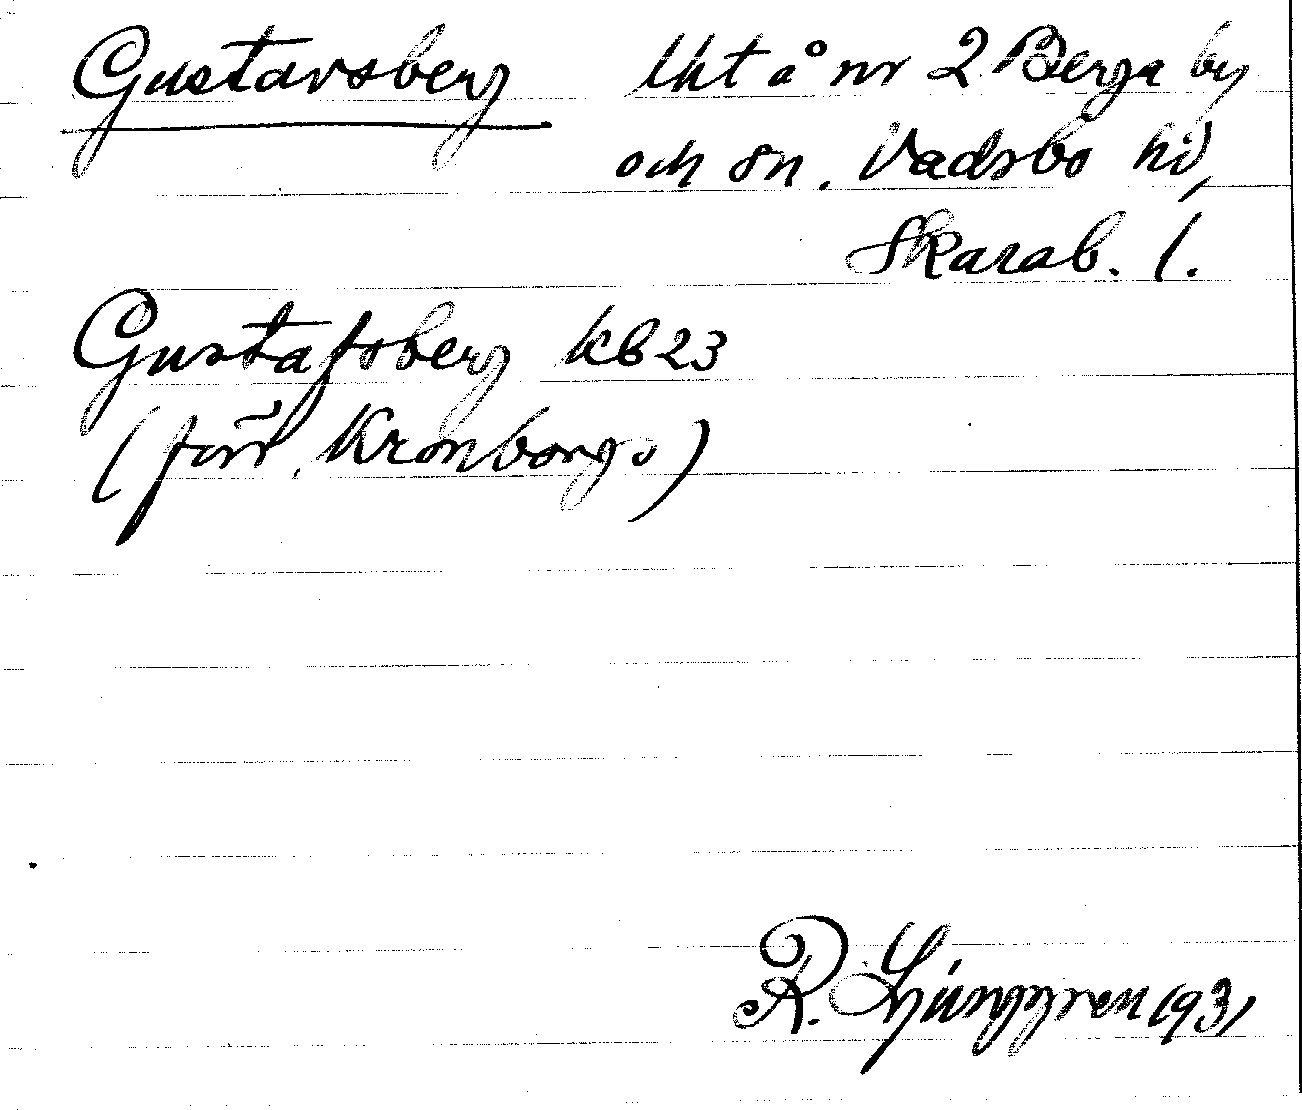 Gustavsberg lht å nr 2 Berga by
och sn. Vadsbo hd,
Skarab. l.
Gustafsberg kb 23
(förr Kronborg.)
R. Ljunggren 1931